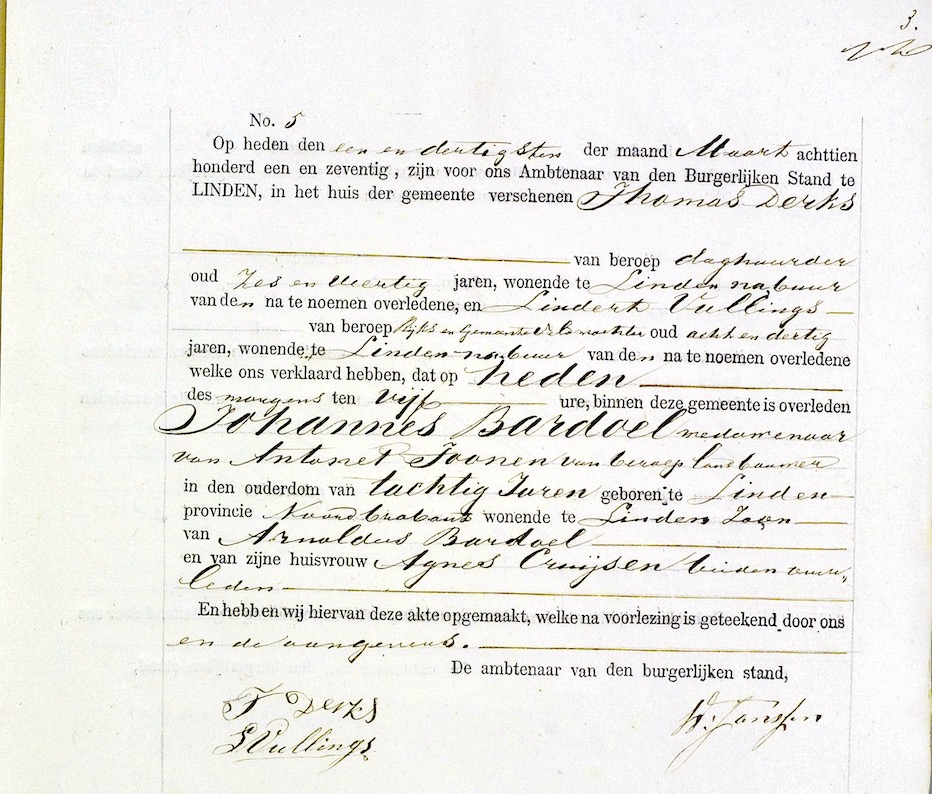 3.
No. 5
Op heden den een en dertigsten der maand Maart achttien
honderd een en zeventig, zijn voor ons Ambtenaar van den Burgerlijken Stand te
LINDEN, in het huis der gemeente verschenen Thomas Derks
van beroep daghuurder
oud Zes en veertig jaren, wonende te Linden nabuur
van den na te noemen overledene, en Lindert Vullings
van beroep Rijks en Gemeente Veldwachter oud acht en dertig
jaren, wonende te Linden nabuur van den na te noemen overledene
welke ons verklaard hebben, dat op heden
des morgens ten vijf ure, binnen deze gemeente is overleden
Johannes Bardoel weduwenaar
van Antonet Toonen van beroep landbouwer
in den ouderdom van tachtig Jaren geboren te Linden
provincie Noordbrabant wonende te Linden Zoon
van Arnoldus Bardoel
en van zijne huisvrouw Agnes Cruijsen beiden over„
leden
En hebben wij hiervan deze akte opgemaakt, welke na voorlezing is geteekend door ons
en de aangevers.
De ambtenaar van den burgerlijken stand,
T Derks
W. Janssen
LVullings